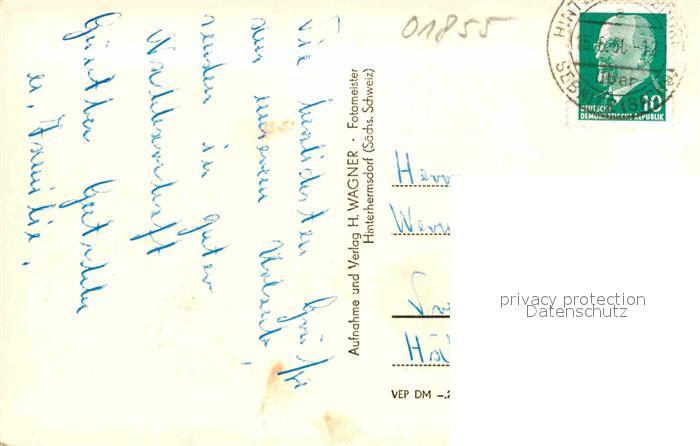 01855
DEUTSCHE
DEMOKRATISCHE REPUBLIK
10
über
Die herzlichsten Grüße
aus unserem Urlaub,
senden in guter
Nachbarschaft
Günther
u. Familie,
Aufnahme und Verlag H. WAGNER · Fotomeister
Hinterhermsdorf (Sächs. Schweiz)
Herr
VEP DM –.2
privacy protection
Datenschutz